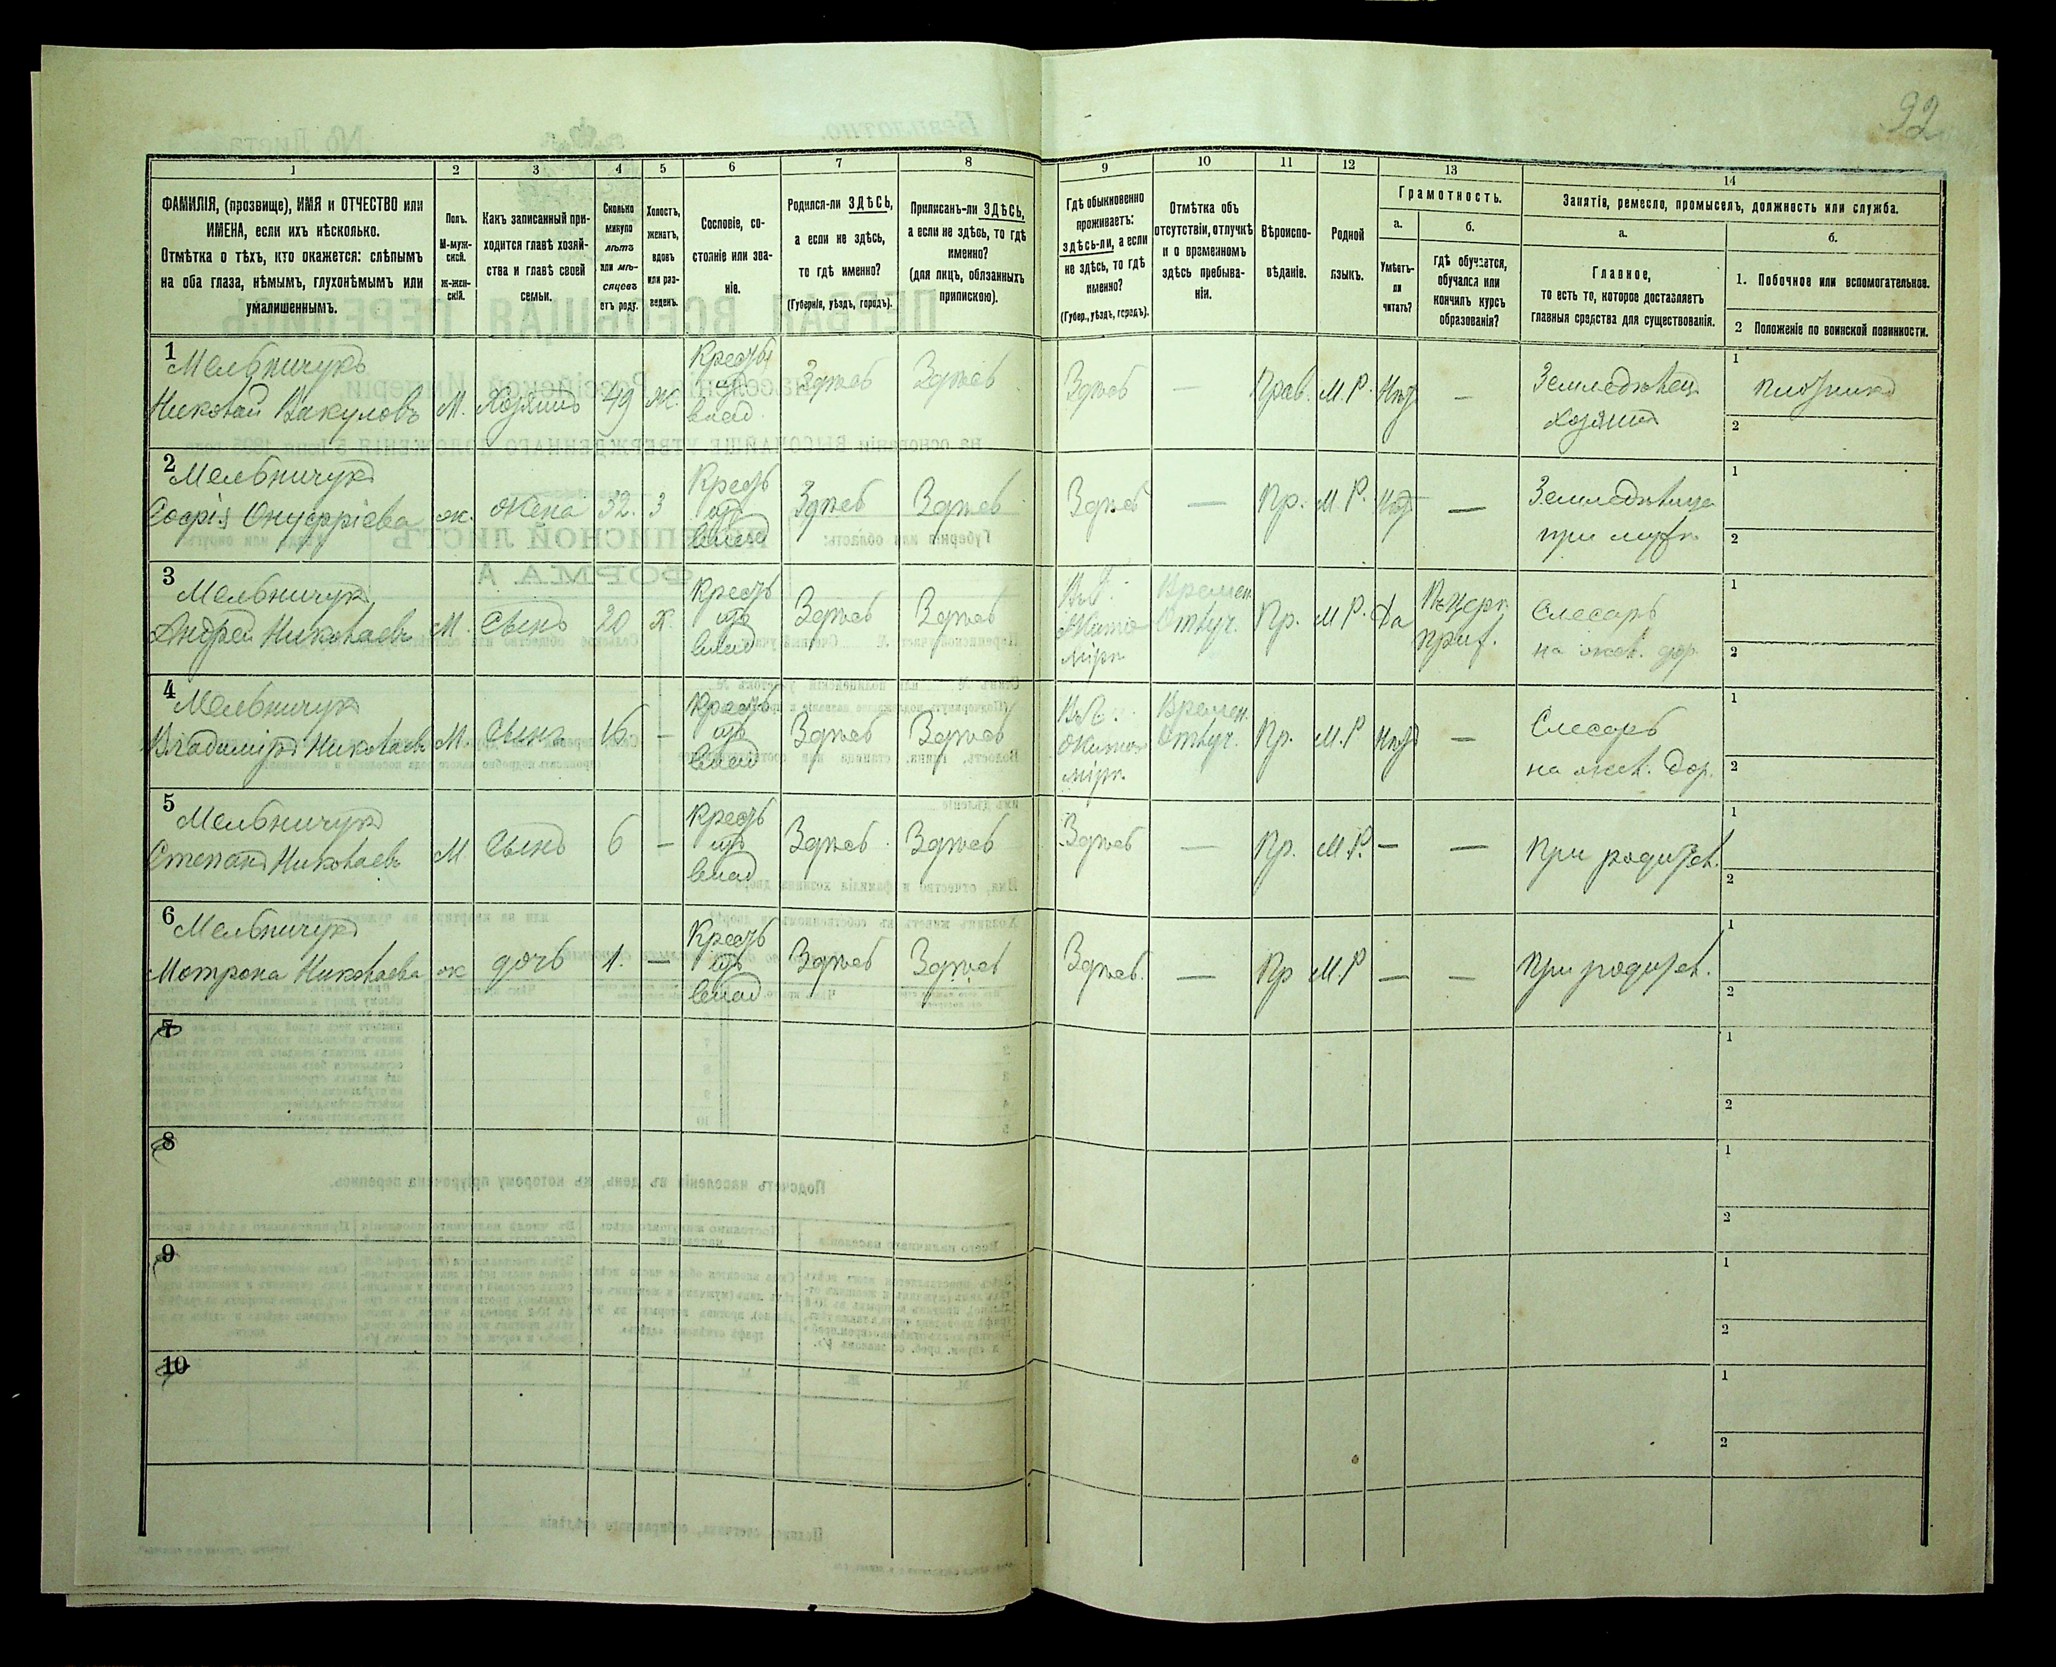 92
1
2
3
4
5
6
7
8
9
10
11
12
13
14
ФАМИЛІЯ, (прозвище), ИМЯ и ОТЧЕСТВО или
ИМЕНА, если ихъ нѣсколько.
Отмѣтка о тѣхъ, кто окажется: слѣпымъ
на оба глаза, нѣмымъ, глухонѣмымъ или
умалишеннымъ.
Полъ.
М-муж-
ской.
ж-жен-
скій.
Какъ записанный при-
ходится главѣ хозяй-
ства и главѣ своей
семьи.
Сколько
минуло
лѣтъ
или мѣ-
сяцевъ
отъ роду.
Холостъ,
женатъ,
вдовъ
или раз-
веденъ.
Сословіе, со-
стояніе или зва-
ніе.
Родился-ли ЗДѢСЬ,
а если не здѣсь,
то гдѣ именно?
(Губернія, уѣздъ, городъ).
Приписанъ-ли ЗДѢСЬ,
а если не здѣсь, то гдѣ
именно?
(для лицъ, обязанныхъ
припискою).
Гдѣ обыкновенно
проживаетъ:
здѣсь-ли, а если
не здѣсь, то гдѣ
именно?
(Губер., уѣздъ, городъ).
Отмѣтка объ
отсутствіи, отлучкѣ
и о временномъ
здѣсь пребыва-
ніи.
Вѣроиспо-
вѣданіе.
Родной
языкъ.
Грамотность.
а.
Умѣетъ-
ли
читать?
б.
гдѣ обучается,
обучался или
кончилъ курсъ
образованія?
Занятія, ремесло, промыселъ, должность или служба.
а.
Главное,
то есть то, которое доставляетъ
главныя средства для существованія.
б.
1. Побочное или вспомогательное.
2 Положеніе по воинской повинности.
1 Мельничукъ
Николай Вакуловъ М. Хозяинъ 49 ж. Крестъ изъ влад. Здѣсь Здѣсь Здѣсь — Прав. М.Р. Нѣт — Земледѣлец хозяинъ
1 плотникъ
2
2 Мельничукъ
Софія Онуфріева ж. Жена 32. з Крестъ изъ влад Здѣсь Здѣсь Здѣсь — Пр. М.Р. Нѣт — Земледѣлица при муж.
1
2
3 Мельничукъ
Андрей Николаевъ М. Сынъ 20 х. Крестъ изъ влад Здѣсь Здѣсь Въ г. Житомірѣ Времен. Отлуч. Пр. М.Р. Да Въ церк. приж. Слесарь на жел. дор.
1
2
4 Мельничукъ
Владиміръ Николаевъ М. Сынъ 16 — Крестъ изъ влад Здѣсь Здѣсь Въ г. Житомірѣ Времен. Отлуч. Пр. М.Р Нѣт — Слесарь на жел. дор.
1
2
5 Мельничукъ
Степанъ Николаевъ М Сынъ 6 — Крестъ изъ влад Здѣсь Здѣсь Здѣсь — Пр. М.Р. — — При родител.
1
2
6 Мельничукъ
Мотрона Николаева ж дочь 1. — Крестъ изъ влад Здѣсь Здѣсь Здѣсь. — Пр М.Р — — При родител.
1
2
7
1
2
8
1
2
9
1
2
10
1
2